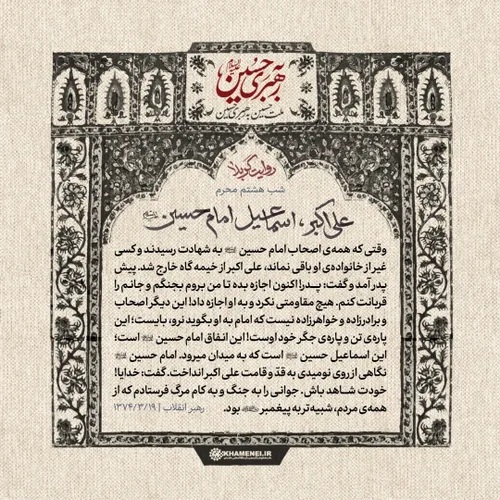 به رهبری حسین
ملت حسین به رهبری حسین
روایت کربلا
شب هشتم محرم
علی اکبر، اسماعیل امام حسین علیه‌السلام
وقتی که همه‌ی اصحاب امام حسین علیه‌السلام به شهادت رسیدند و کسی
غیر از خانواده‌ی او باقی نماند، علی اکبر از خیمه گاه خارج شد. پیش
پدر آمد و گفت: پدر! اکنون اجازه بده تا من بروم بجنگم و جانم را
قربانت کنم. هیچ مقاومتی نکرد و به او اجازه داد! این دیگر اصحاب
و برادرزاده و خواهرزاده نیست که امام به او بگوید نرو، بایست؛ این
پاره‌ی تن و پاره‌ی جگر خود اوست! این انفاق امام حسین علیه‌السلام است؛
این اسماعیل حسین علیه‌السلام است که به میدان میرود. امام حسین علیه‌السلام
نگاهی از روی نومیدی به قدّ و قامت علی اکبر انداخت. گفت: خدایا!
خودت شاهد باش. جوانی را به جنگ و به کام مرگ فرستادم که از
همه‌ی مردم، شبیه‌تر به پیغمبر بود. رهبر انقلاب | ۱۳۷۴/۳/۱۹
KHAMENEI.IR